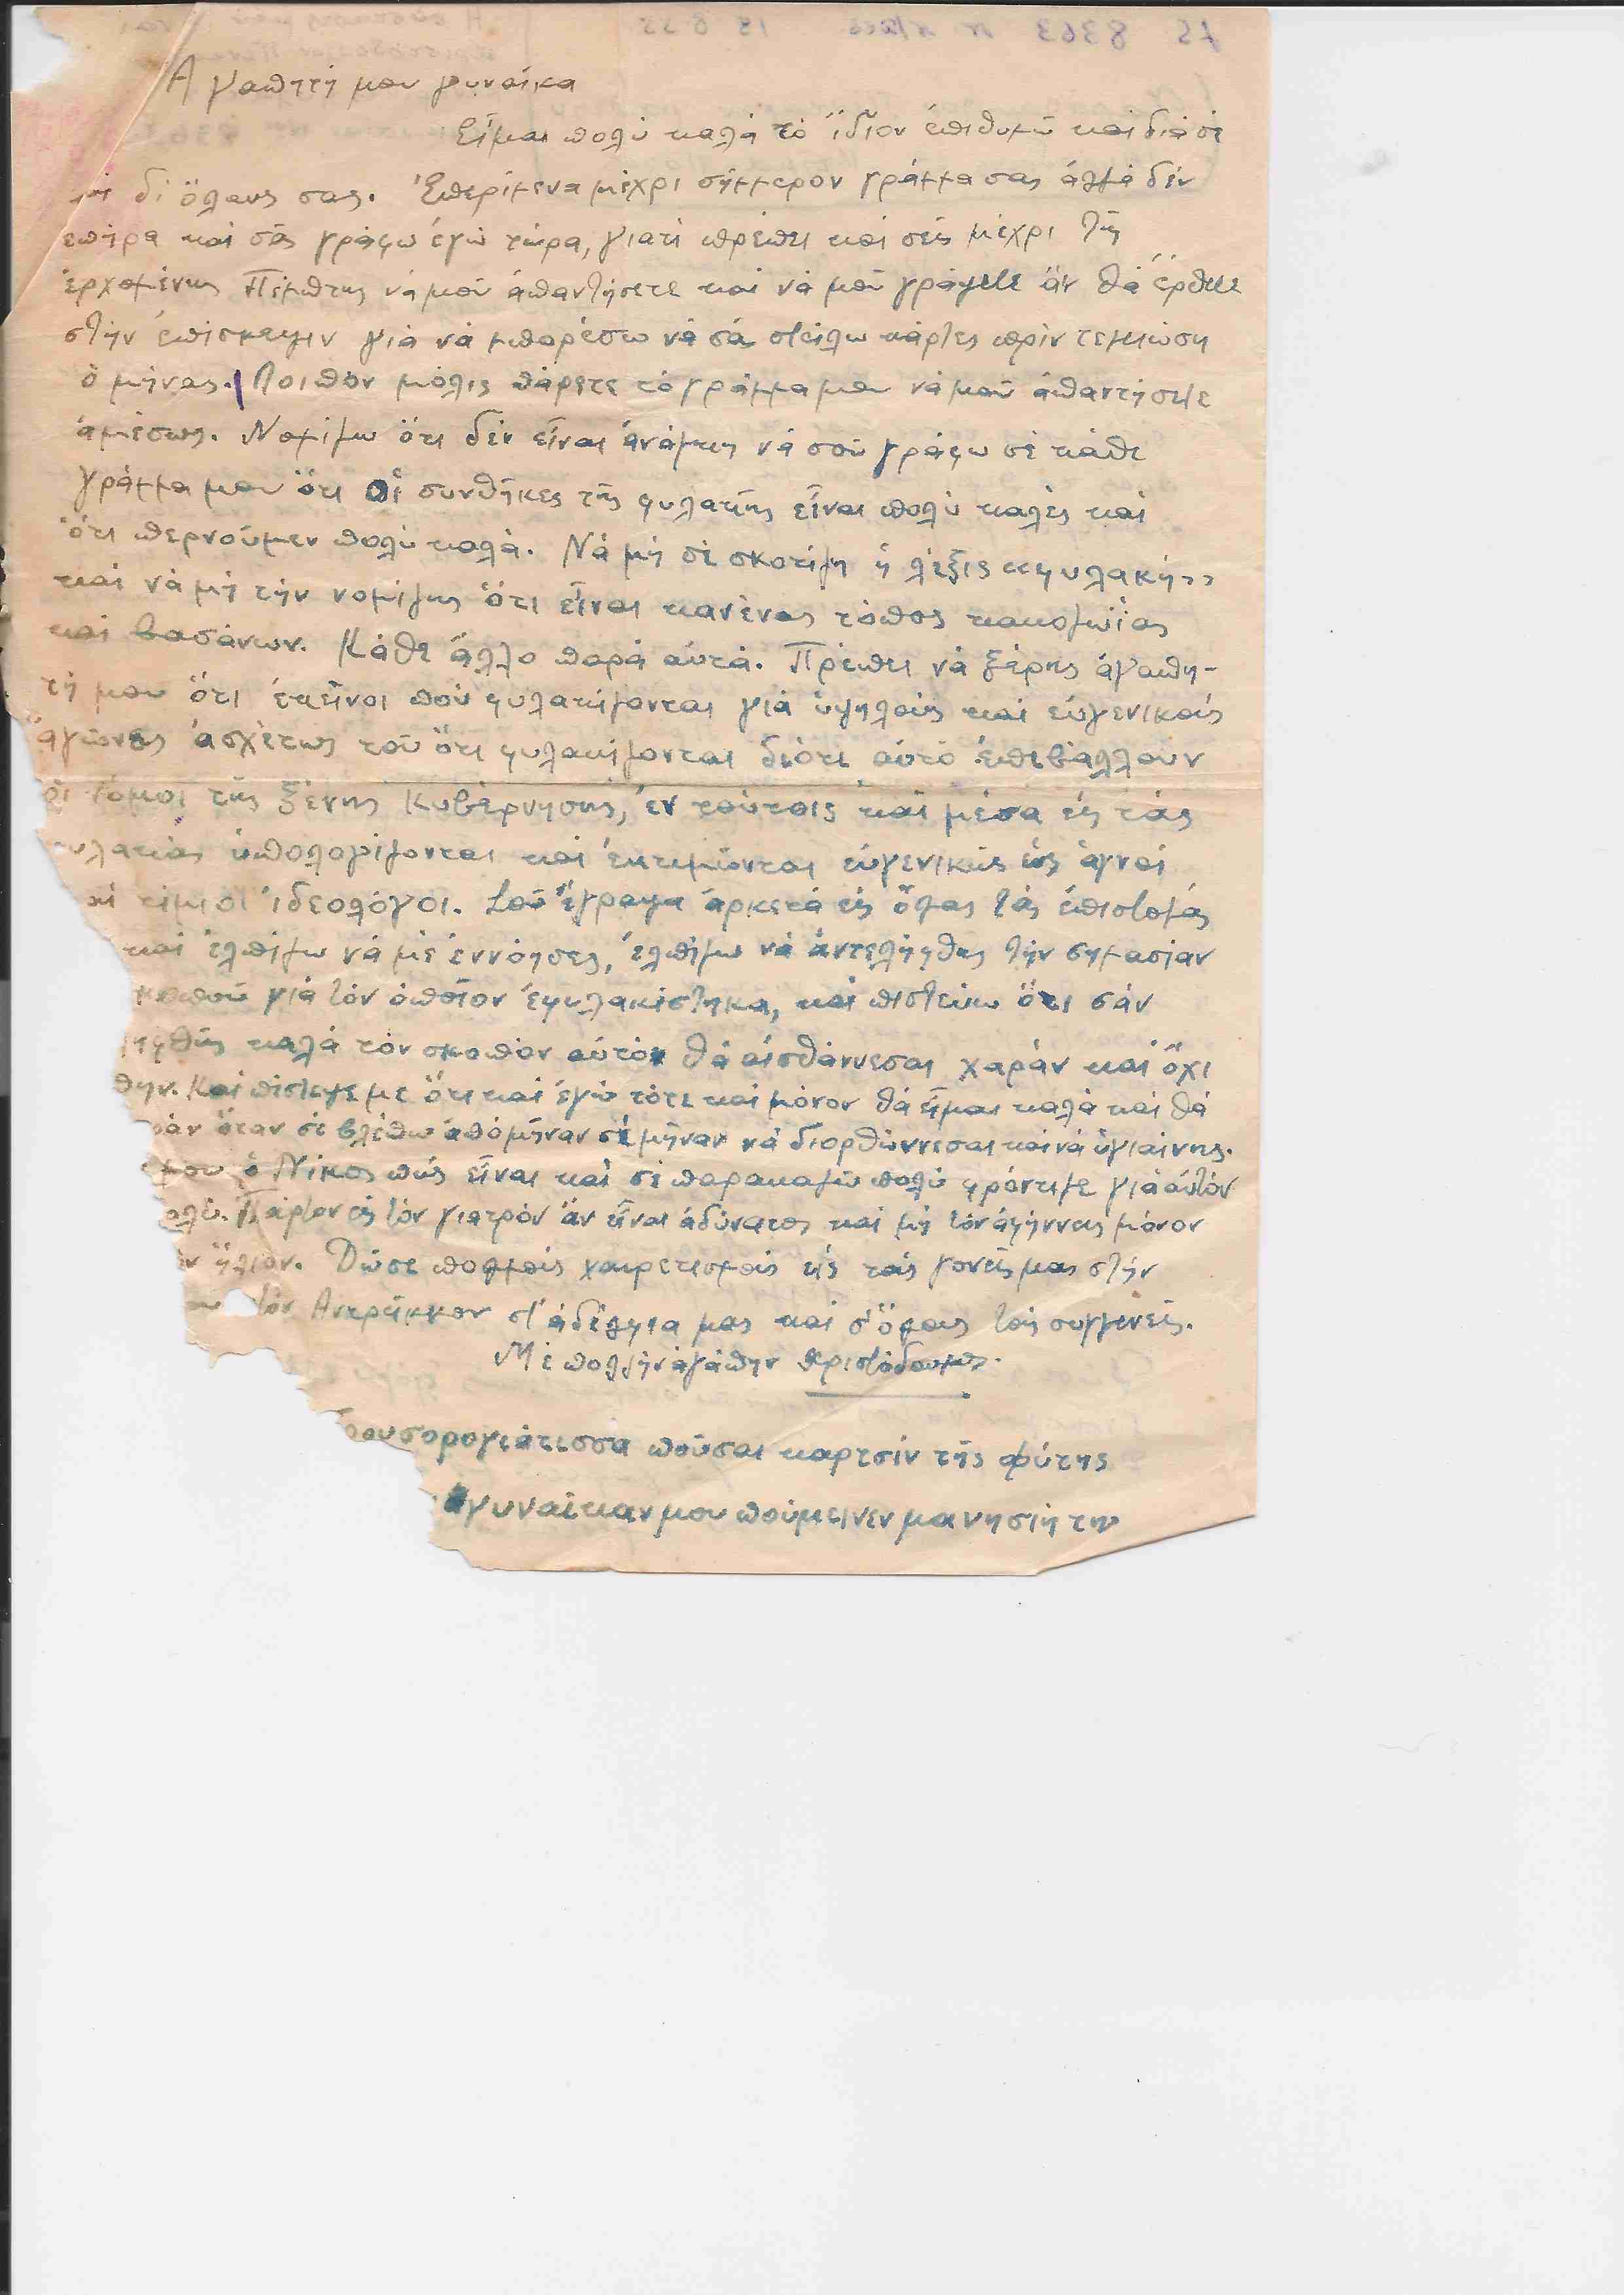 Ἀγαπητή μου γυναίκα
Εἶμαι πολύ καλά τό ἴδιον ἐπιθυμῶ καί διά σέ
καί δι' ὅλους σας. Ἐπερίμενα μέχρι σήμμερον γράμμα σας ἀλλά δέν
ἐπῆρα καί σᾶς γράφω ἐγώ τώρα, γιατί πρέπει καί σεῖς μέχρι τῆς
ἐρχομένης Πέμπτης νά μοῦ ἀπαντήσετε καί νά μοῦ γράψετε ἄν θά ἔρθετε
στήν ἐπίσκεψιν γιά νά μπορέσω νά σᾶς στείλω κάρτες πρίν τελειώση
ὁ μῆνας. Λοιπόν μόλις πάρετε τό γράμμα μου νά μοῦ ἀπαντήσετε
ἀμέσως. Νομίζω ὅτι δέν εἶναι ἀνάγκης νά σοῦ γράφω σέ κάθε
γράμμα μου ὅτι οἱ συνθῆκες τῆς φυλακῆς εἶναι πολύ καλές καί
ὅτι περνοῦμεν πολύ καλά. Νά μή σέ σκοτίζη ἡ λέξις «φυλακή»
καί νά μή τήν νομίζης ὅτι εἶναι κανένας τόπος κακοζωΐας
καί βασάνων. Κάθε ἄλλο παρά αὐτά. Πρέπει νά ξέρης ἀγαπη-
τή μου ὅτι ἐκεῖνοι πού φυλακίζονται γιά ὑψηλούς καί εὐγενικούς
ἀγῶνας ἀσχέτως τοῦ ὅτι φυλακίζονται διότι αὐτό ἐπιβάλλουν
οἱ νόμοι τῆς ξένης Κυβέρνησης, ἐν τούτοις καί μέσα εἰς τάς
φυλακάς ὑπολογίζονται καί ἐκτιμῶνται εὐγενικῶς ὡς ἁγνοί
καί τίμιοι ἰδεολόγοι. Σοῦ ἔγραψα ἀρκετά εἰς ὅλας τάς ἐπιστολάς
καί ἐλπίζω νά μέ ἐννόησες, ἐλπίζω νά ἀντελήφθης τήν σημασίαν
σκοποῦ γιά τόν ὁποῖον ἐφυλακίστηκα, καί πιστεύω ὅτι σάν
ηφθῆς καλά τόν σκοπόν αὐτόν θά αἰσθάννεσαι χαράν καί ὄχι
πην. Καί πίστεψε με ὅτι καί ἐγώ τότε καί μόνον θά εἶμαι καλά καί θά
ράν ὅταν σέ βλέπω ἀπό μῆναν σέ μῆναν νά διορθώννεσαι καί νά ὑγιαίνης.
μου ὁ Νίκος πῶς εἶναι καί σέ παρακαλῶ πολύ φρόντιζε γιά αὐτόν
πολύ. Πάρτον εἰς τόν γιατρόν ἄν εἶναι ἀδύνατος καί μή τόν ἀφήννεις μόνον
ν ἥλιον. Δῶσε πολλούς χαιρετισμούς εἰς τούς γονεῖς μας στήν
τόν Αντρίκκον στ' ἀδέλφια μας καί σ' ὅλους τούς συγγενεῖς.
Μέ πολλήν ἀγάπην Χριστόδουλος.
ρουσορογιάτισσα ποῦσαι καρτσίν τῆς Φύτης
γυναίκαν μου πούμεινεν μανησιή της